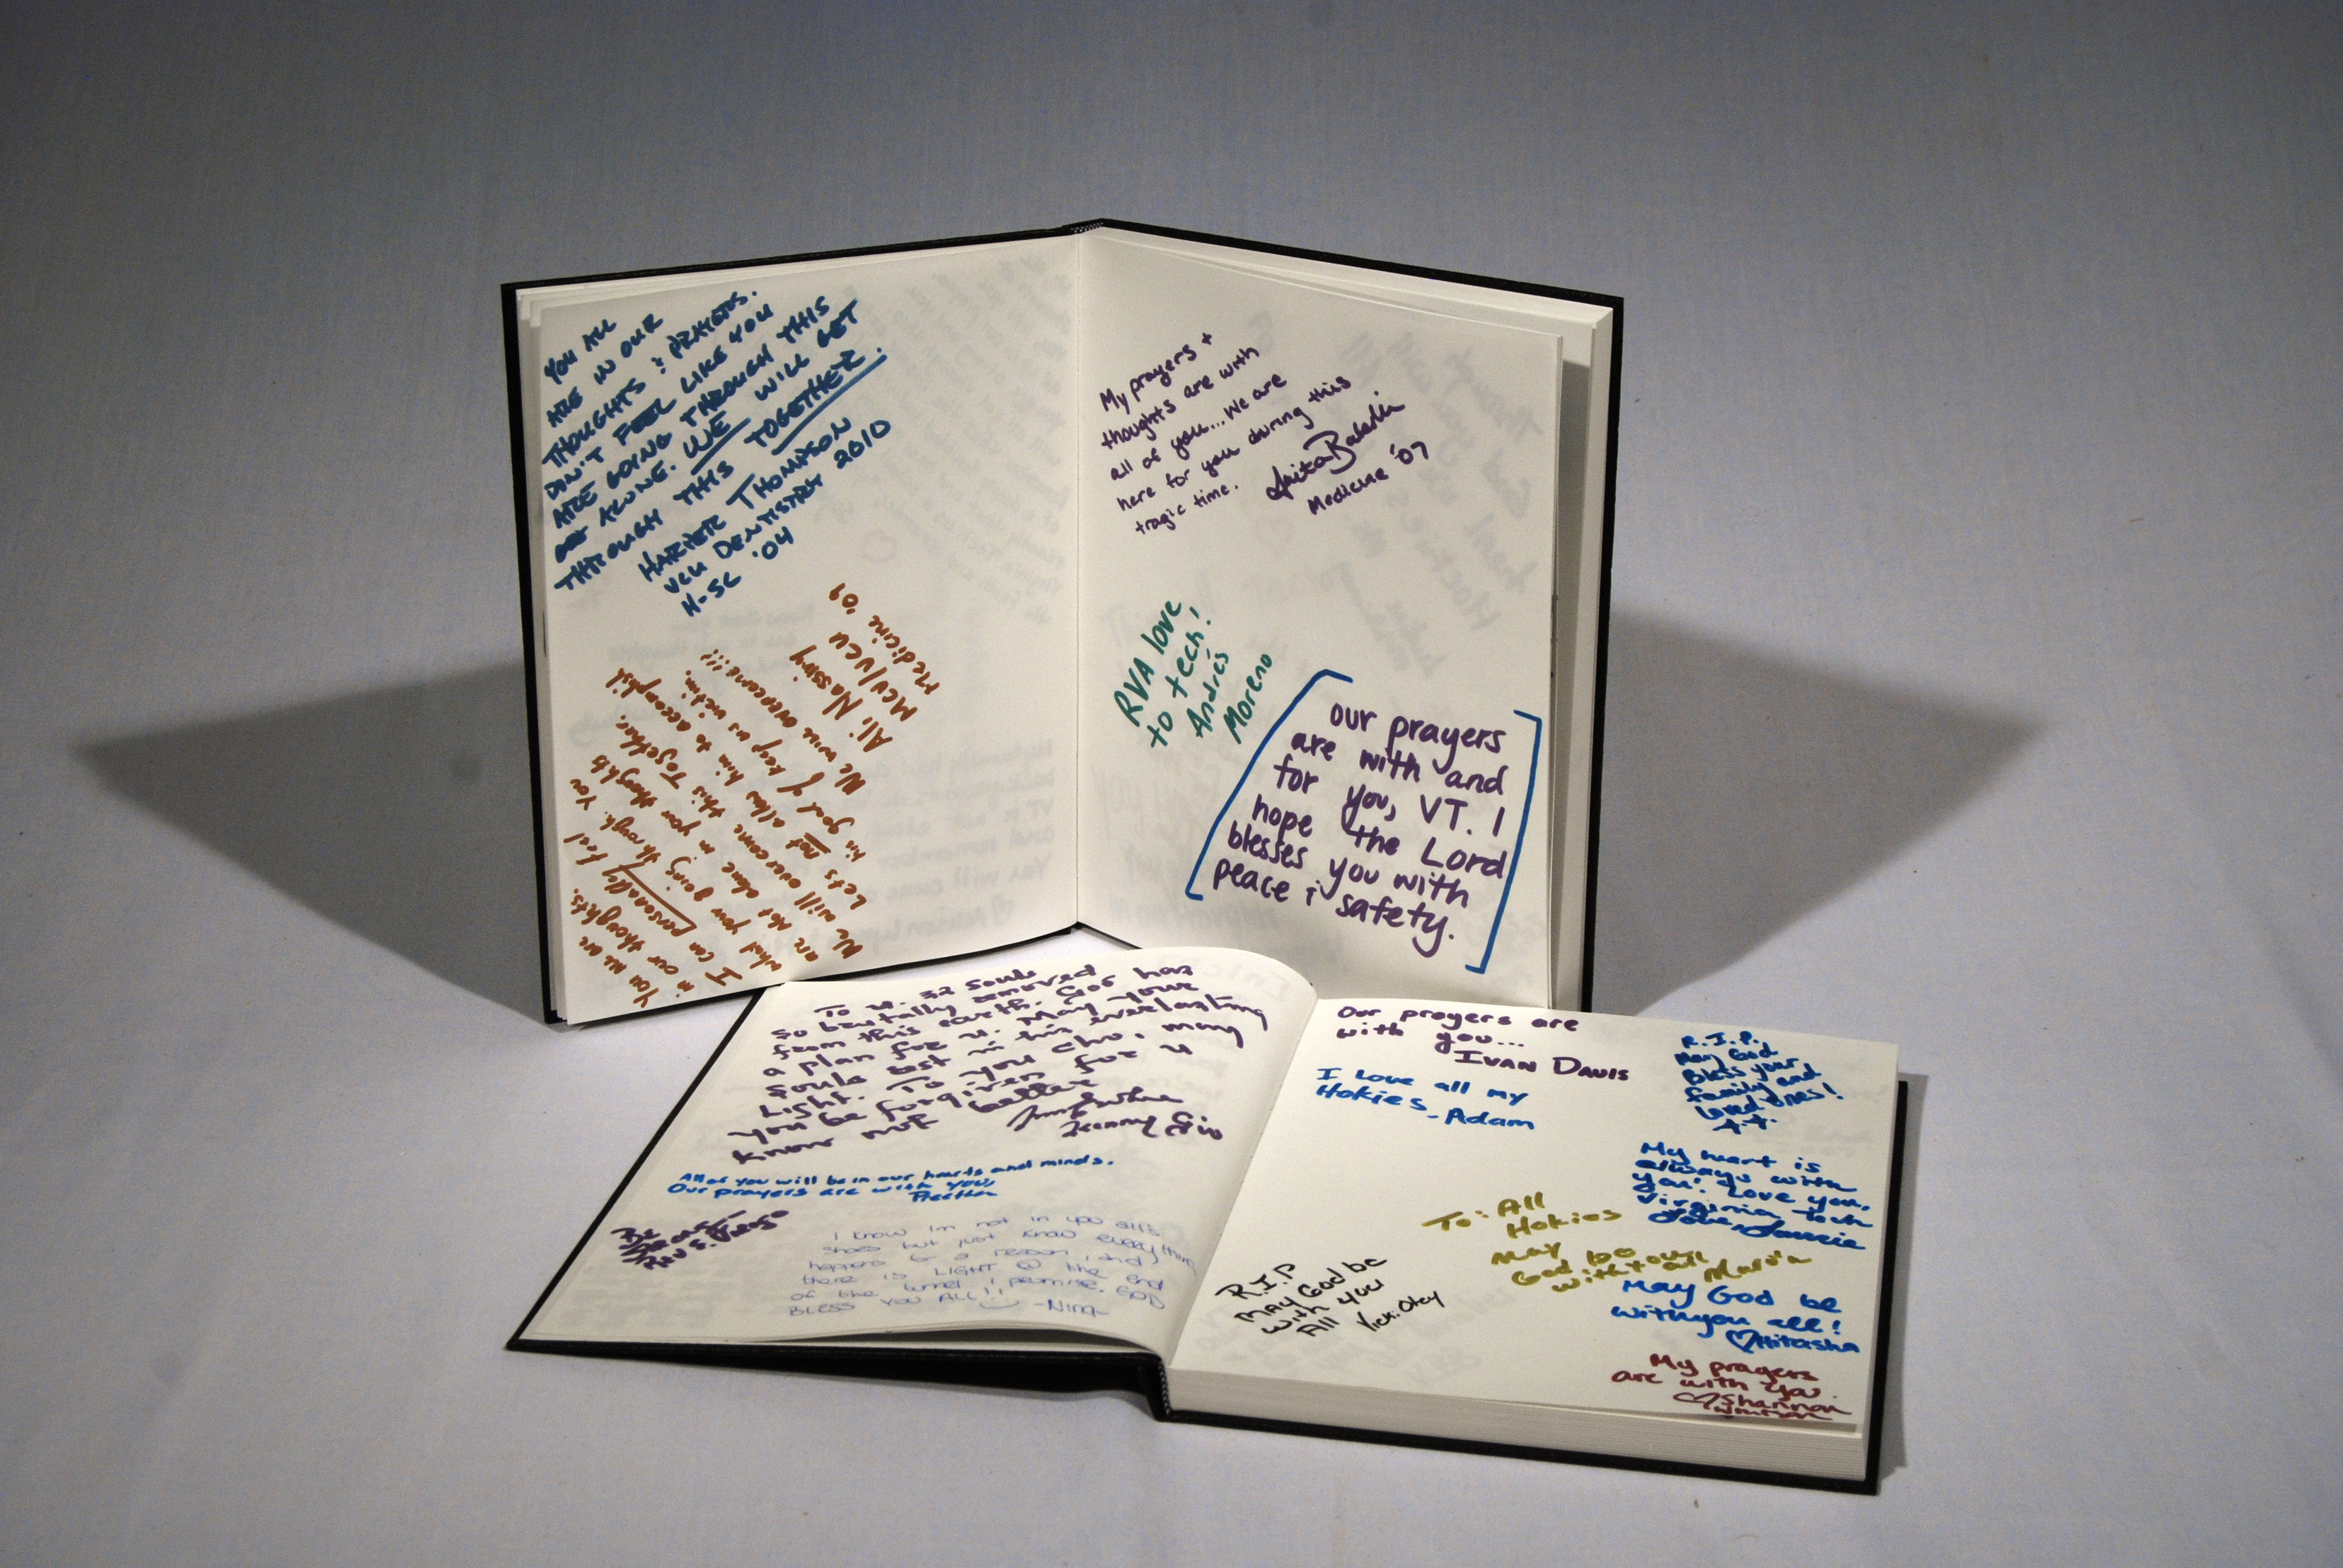 YOU ALL
ARE IN OUR
THOUGHTS & PRAYERS.
DON'T FEEL LIKE YOU
ARE GOING THROUGH THIS
ALONE. WE WILL GET
THROUGH THIS TOGETHER.
HARPER THOMPSON
VCU DENTISTRY 2010
H-SC '04
You all are
in our thoughts.
I can personally feel
what your going through. You
are not alone in your thoughts
We will overcome this together.
Lets not allow him to accomplish
his goal of keep us victim.
We will overcome!!!!
Ali Nassiry
MCV/VCU
Medicine '09
My prayers +
thoughts are with
all of you... We are
here for you during this
tragic time.
Medicine '07
RVA love
to tech!
Andrés
Moreno
our prayers
are with and
for you, VT. I
hope the Lord
blesses you with
peace & safety.
To u. 32 souls
so brutally removed
from this earth. God has
a plan for u. May your
souls rest in his everlasting
Light. To you Cho, may
you be forgiven for u
know not better
All of you will be in our hearts and minds.
Our prayers are with you,
Be
Strong
I know Im not in you all's
shoes but just know everything
happens 4 a reason, and
there is LIGHT @ the end
of the tunnel i promise. GOD
BLESS YOU ALL!! -Nina
Our prayers are
with you...
IVAN DAVIS
I Love all my
Hokies -Adam
R.I.P.
May God
Bless your
family and
loved ones!
My heart is
always with
you! Love you,
Virginia Tech
Love, Laurie
To: All
Hokies
May
God be
with you all
Maria
R.I.P
MAY God be
with you
All
May God be
with you all!
♡Mitasha
My prayers
are with you.
♡Shannon